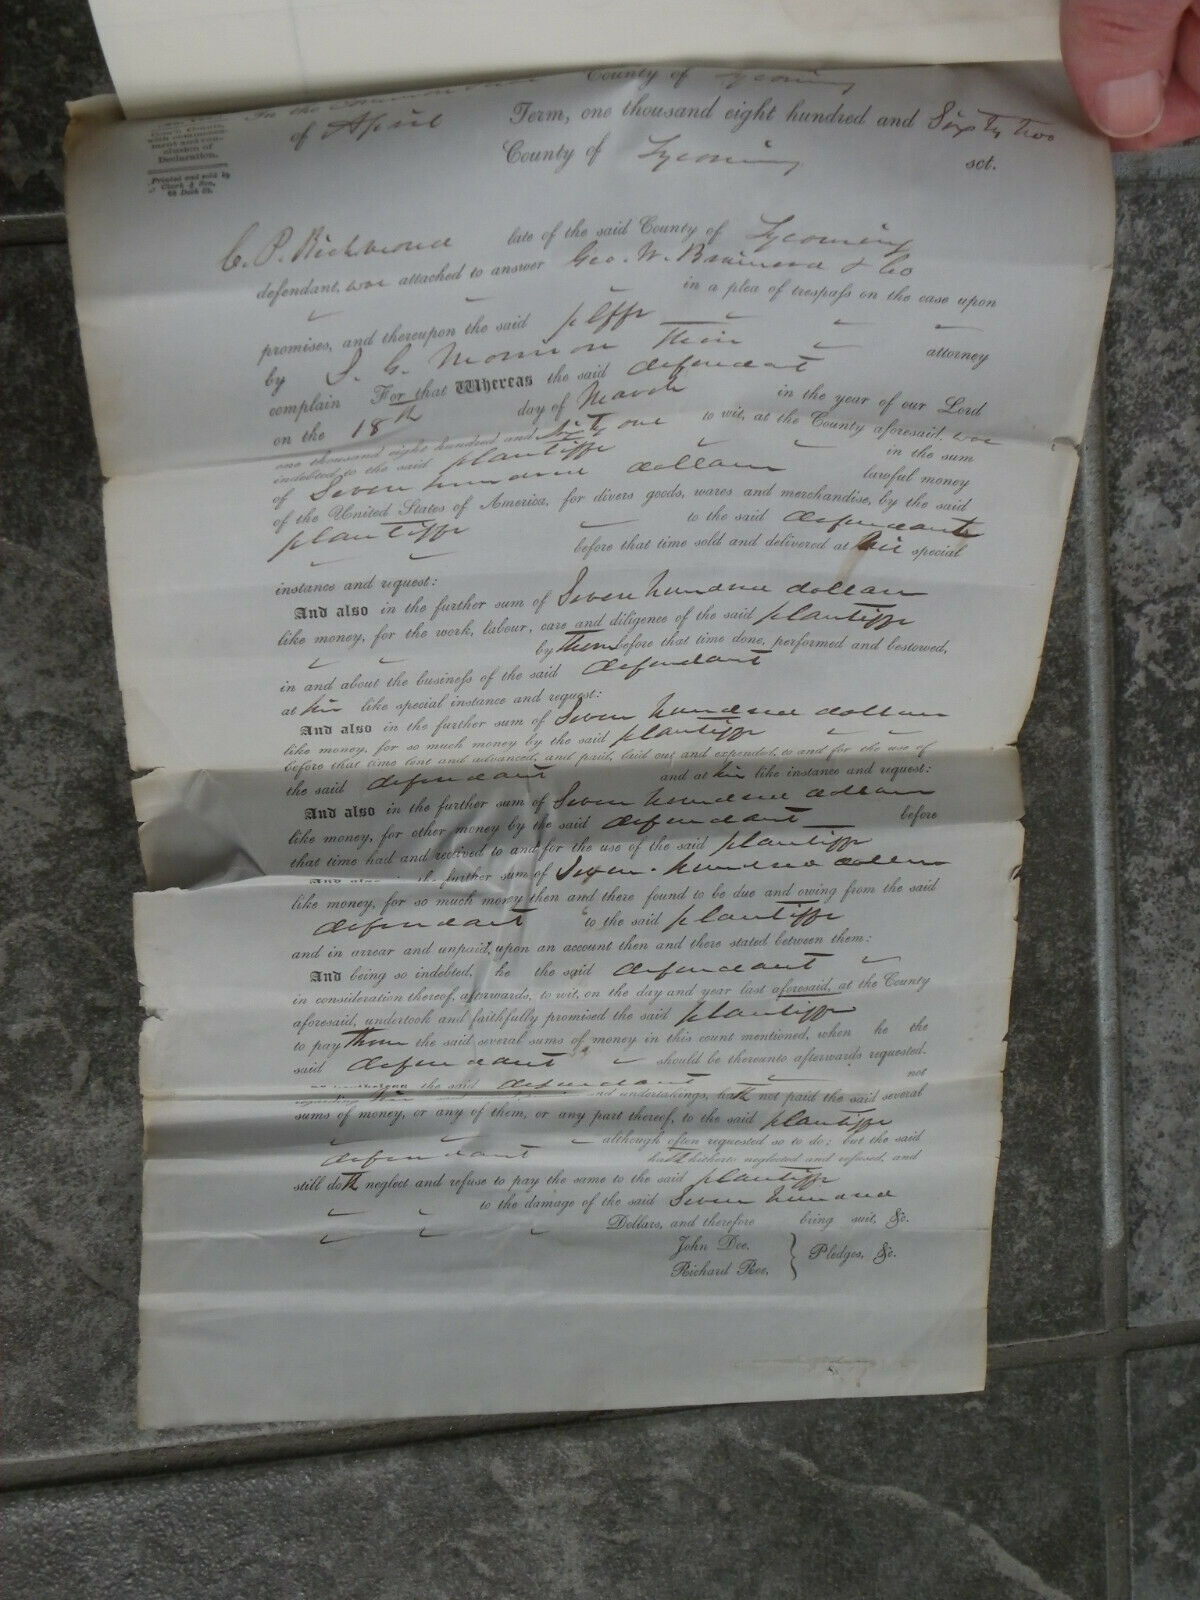 In the Common County of Lycoming
of April Term, one thousand eight hundred and Sixty two
County of Lycoming sct.
Declaration.
Printed and sold by
C. P. Richmond late of the said County of Lycoming
defendant, was attached to answer Geo. W. & Co
in a plea of trespass on the case upon
promises, and thereupon the said plffs
by S. G. Morrison their attorney
complain For that Whereas the said defendant
on the 18th day of March in the year of our Lord
one thousand eight hundred and Sixty one to wit, at the County aforesaid, was
indebted to the said plantiffs in the sum
of Seven hundred dollars lawful money
of the United States of America, for divers goods, wares and merchandise, by the said
plantiffs to the said defendants
before that time sold and delivered at his special
instance and request:
And also in the further sum of Seven hundred dollars
like money, for the work, labour, care and diligence of the said plantiffs
by them before that time done, performed and bestowed,
in and about the business of the said defendant
at his like special instance and request:
And also in the further sum of Seven hundred dollars
like money, for so much money by the said plantiffs
before that time lent and advanced, and paid, laid out and expended, to and for the use of
the said defendant and at his like instance and request:
And also in the further sum of Seven hundred dollars
like money, for other money by the said defendant before
that time had and received to and for the use of the said plantiffs
And also in the further sum of Seven hundred dollars
like money, for so much money then and there found to be due and owing from the said
defendant to the said plantiffs
and in arrear and unpaid, upon an account then and there stated between them:
And being so indebted, he the said defendant
in consideration thereof, afterwards, to wit, on the day and year last aforesaid, at the County
aforesaid, undertook and faithfully promised the said plantiffs
to pay them the said several sums of money in this count mentioned, when he the
said defendant should be thereunto afterwards requested.
the said defendant not
regarding his and undertakings, hath not paid the said several
sums of money, or any of them, or any part thereof, to the said plantiffs
although often requested so to do; but the said
defendant hath hitherto neglected and refused, and
still doth neglect and refuse to pay the same to the said plantiffs
to the damage of the said Seven hundred
Dollars, and therefore bring suit, &c.
John Doe,
Richard Roe, } Pledges, &c.